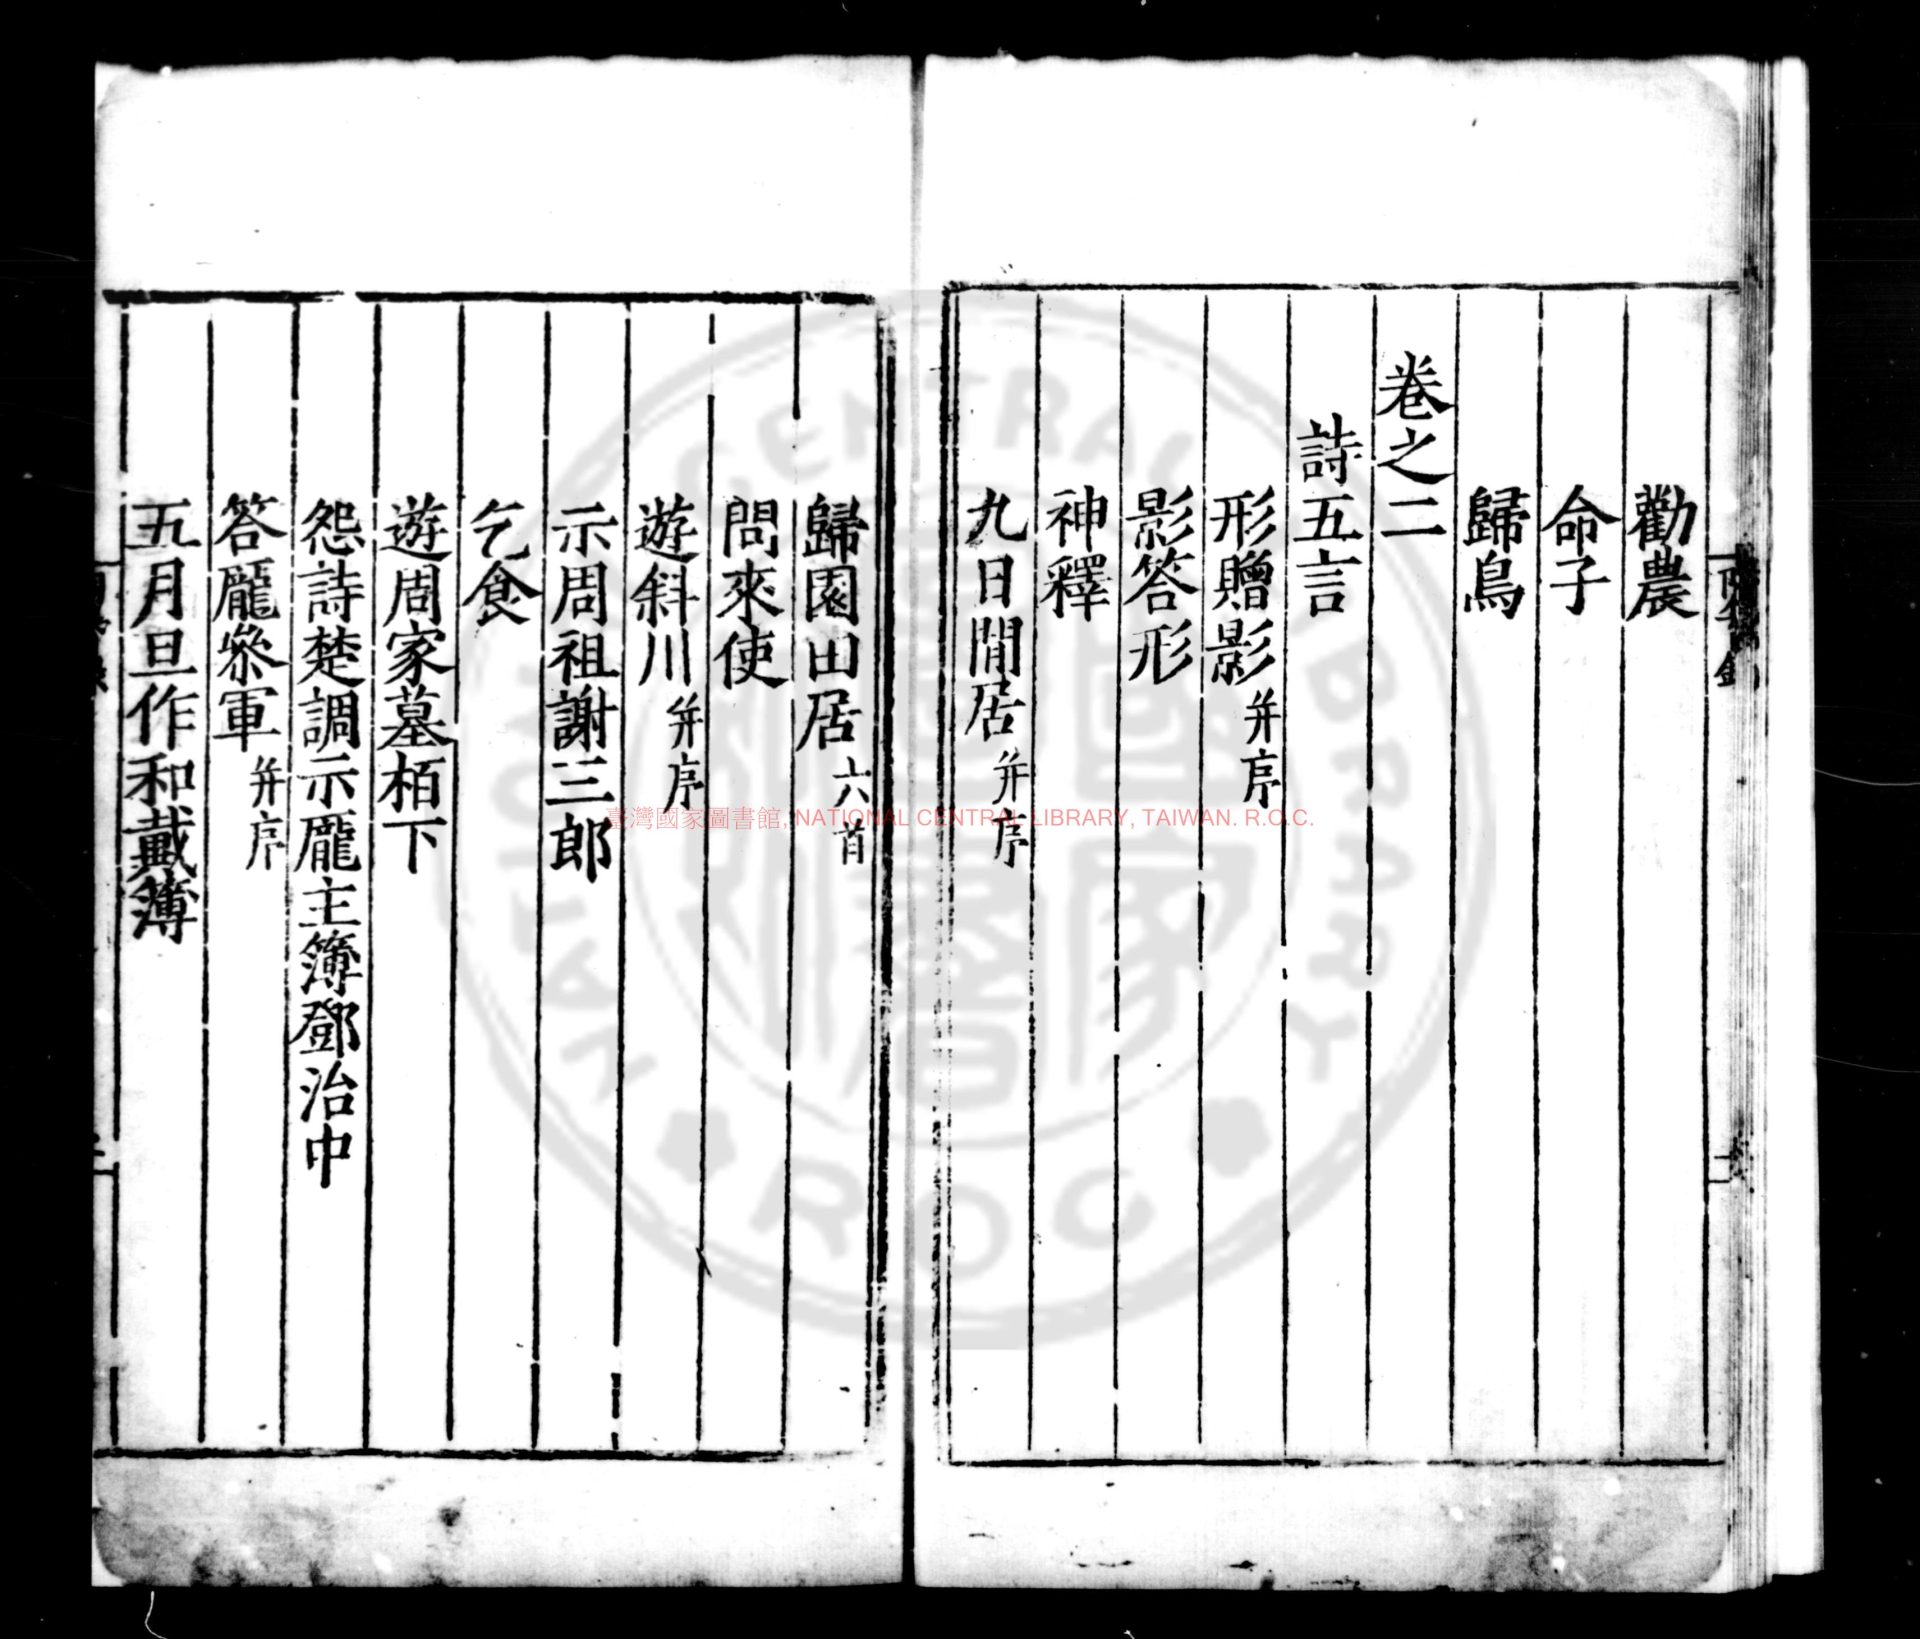 勸農
命子
歸鳥
卷之二
詩五言
形贈影 并序
影答形
神釋
九日閒居 并序
歸園田居 六首
問來使
遊斜川 并序
示周祖謝三郎
乞食
遊周家墓栢下
怨詩楚調示龐主簿鄧治中
答龐叅軍 并序
五月旦作和戴簿
臺灣國家圖書館, NATIONAL CENTRAL LIBRARY, TAIWAN. R.O.C.
NATIONAL CENTRAL LIBRARY
ROC